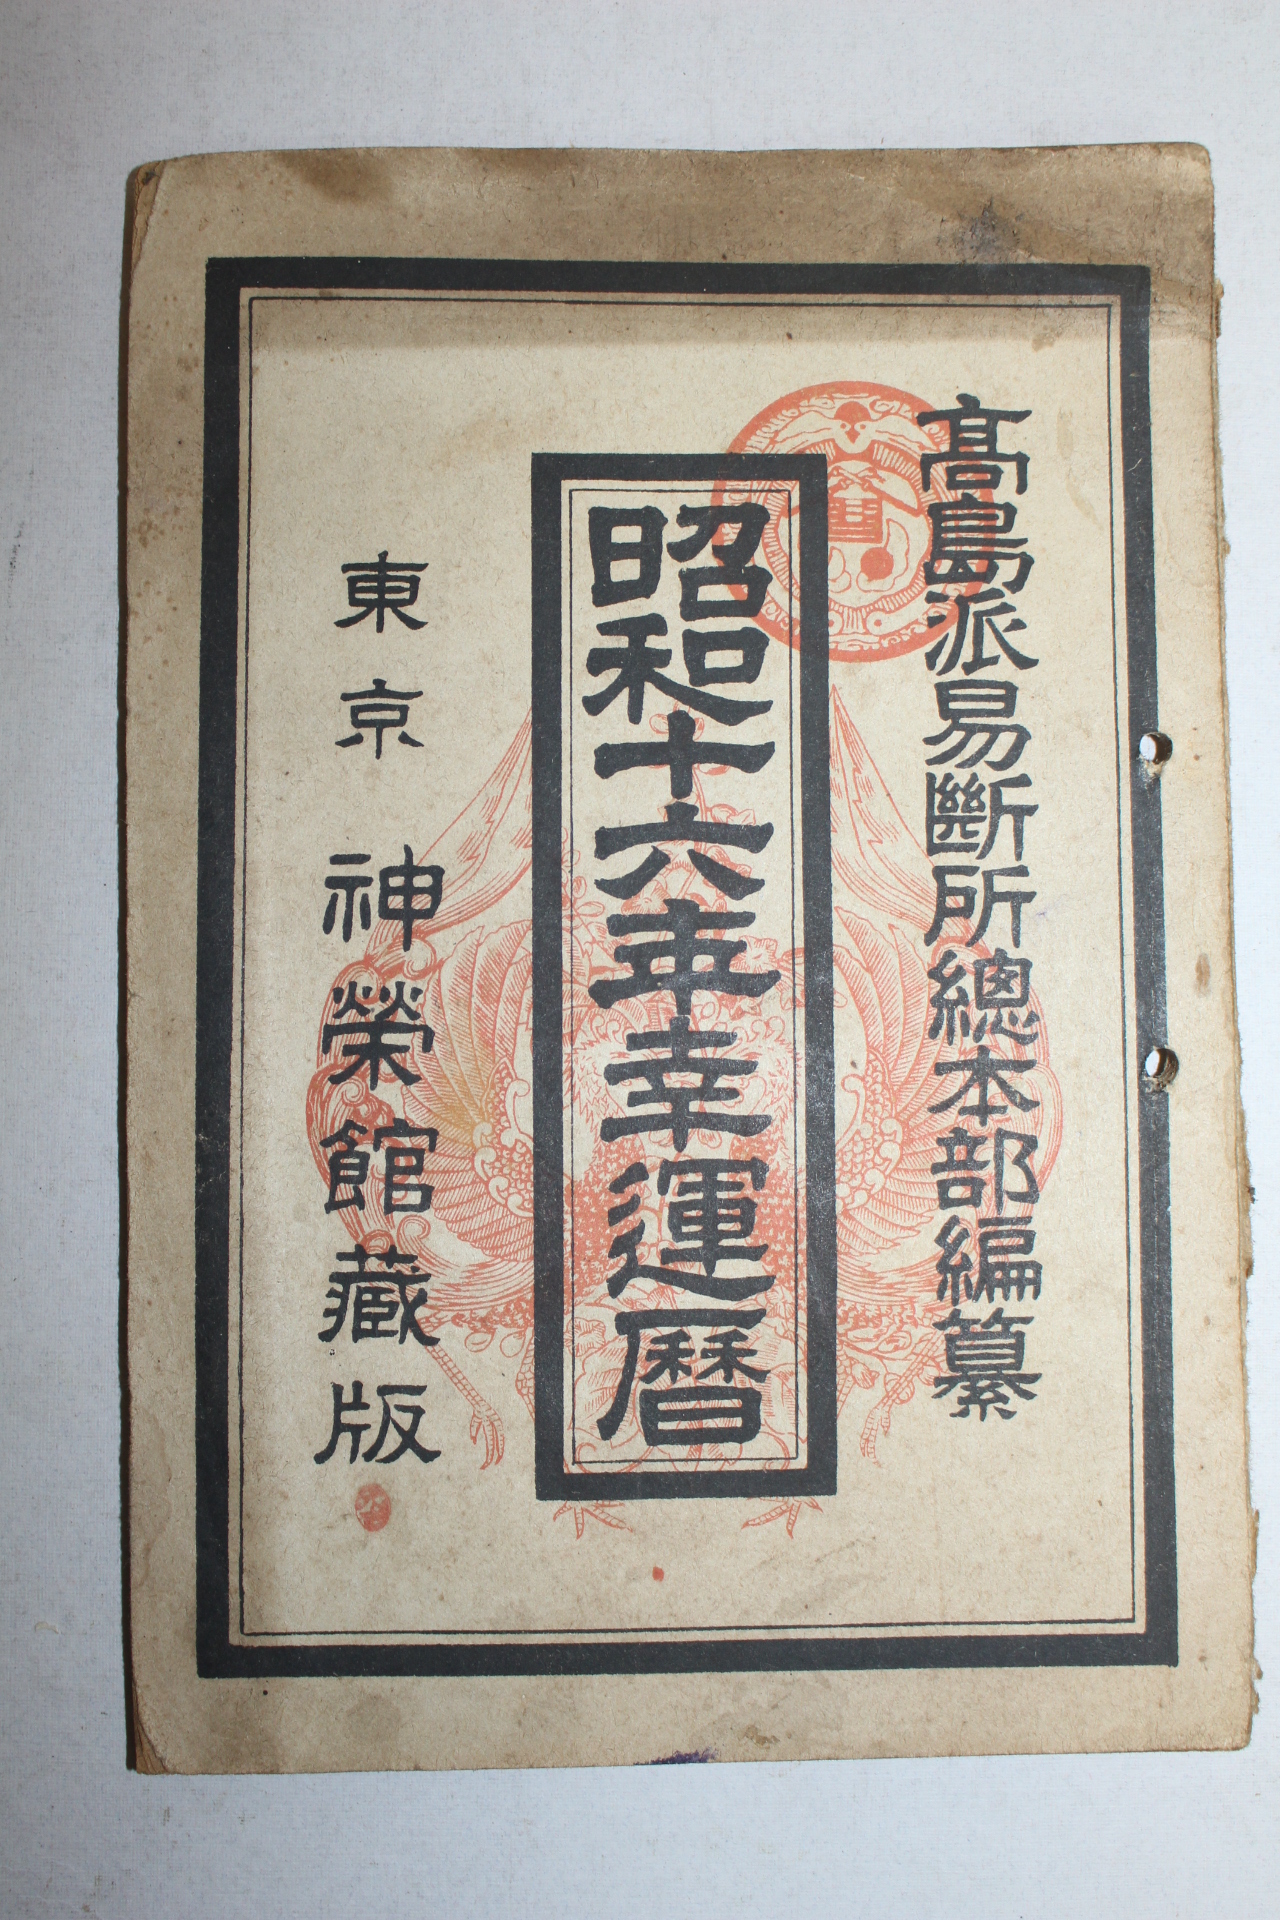 髙島派易斷所總本部編纂
昭和十六年幸運曆
東京 神榮館藏版